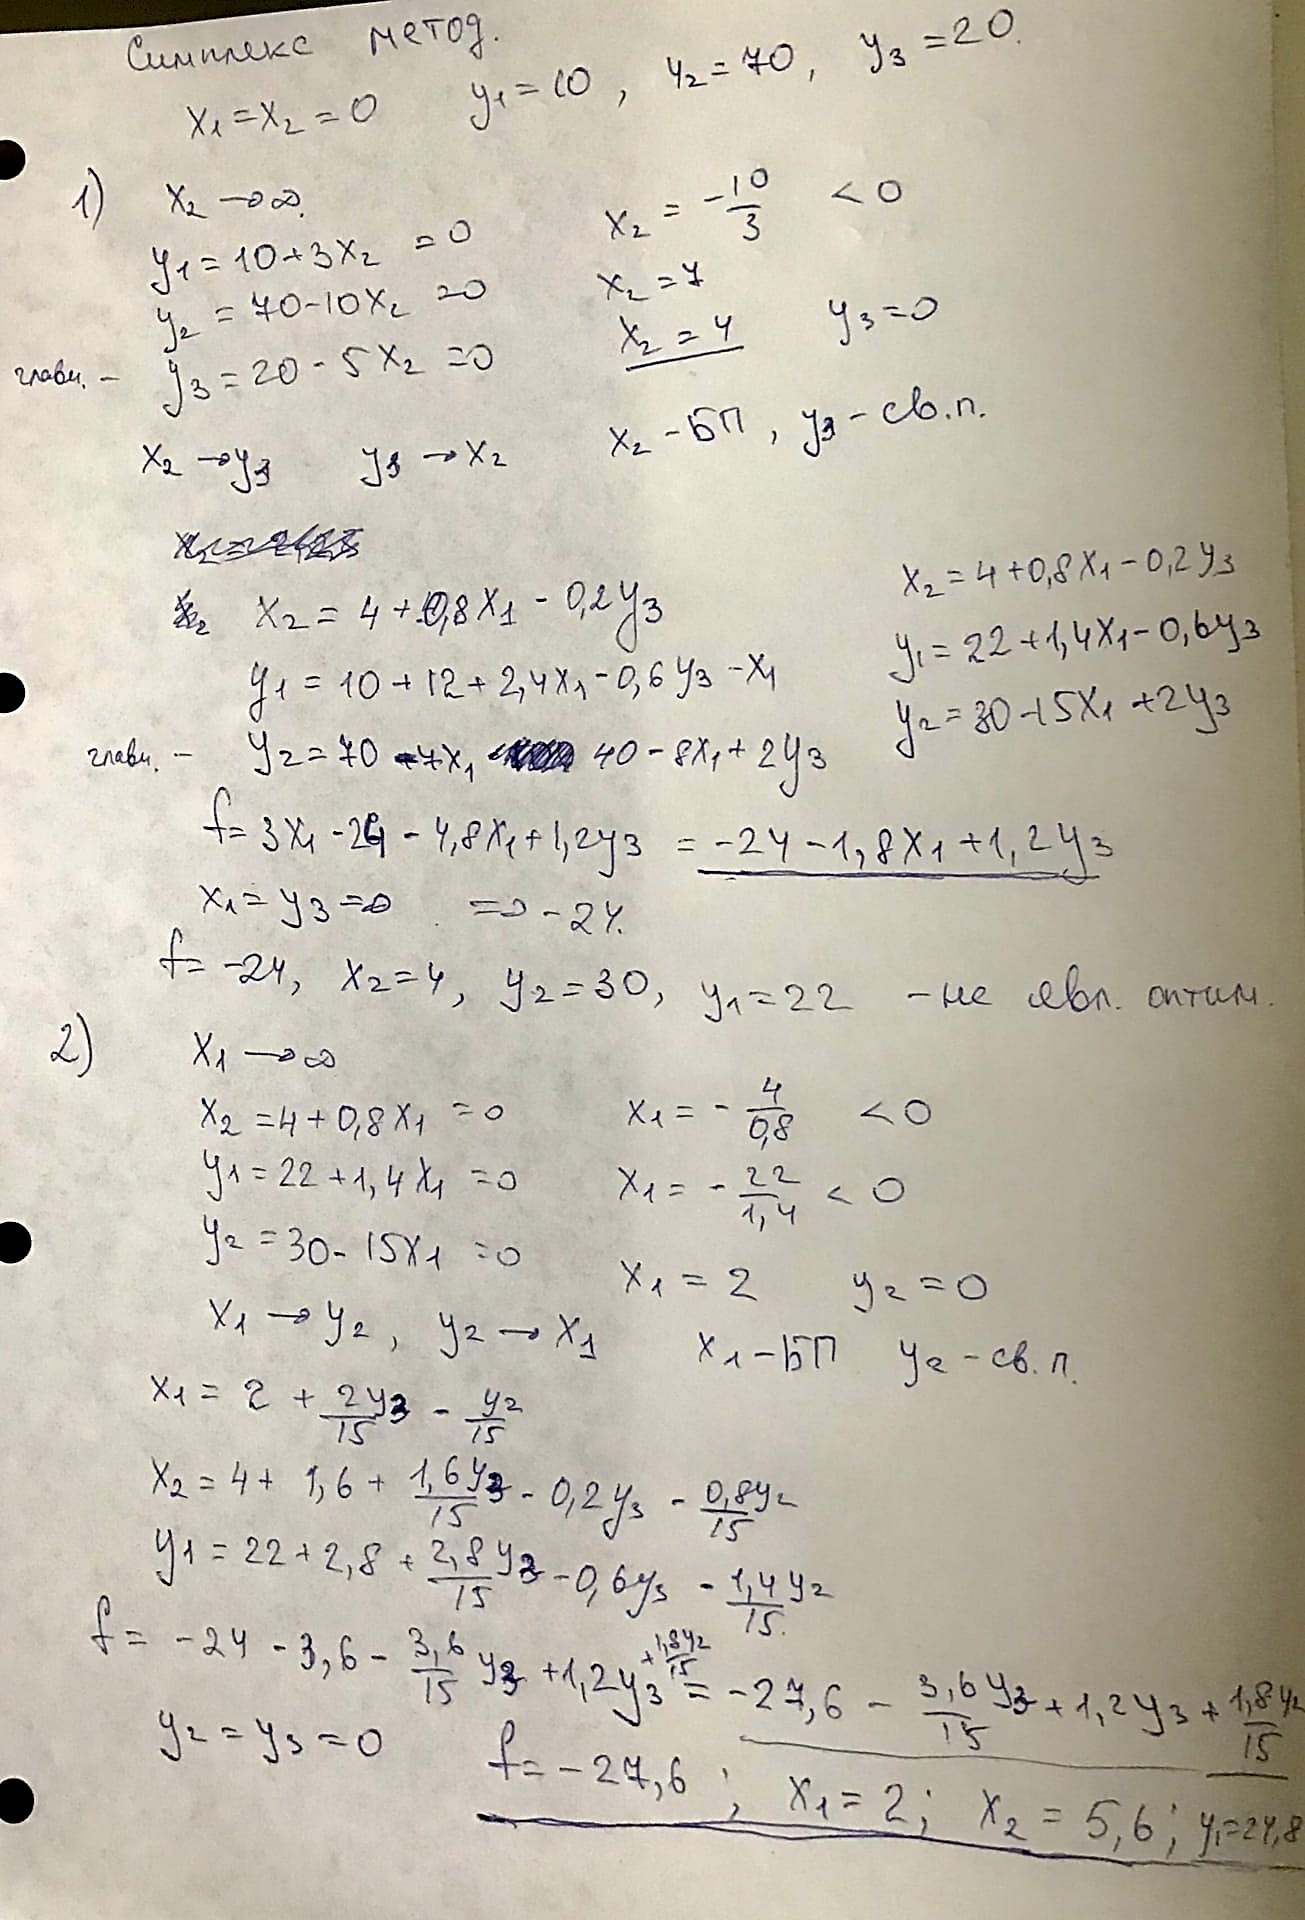 Симплекс метод.
x₁ = x₂ = 0   y₁ = 10, y₂ = 70, y₃ = 20.
1) x₂ → ∞.   x₂ = -10/3 < 0
y₁ = 10 + 3x₂ = 0
y₂ = 70 - 10x₂ = 0   x₂ = 7
главн. - y₃ = 20 - 5x₂ = 0   x₂ = 4   y₃ = 0
x₂ → y₃   y₃ → x₂   x₂ - БП, y₃ - св.п.
x₂ = 4 + 0,8x₁ - 0,2y₃   x₂ = 4 + 0,8x₁ - 0,2y₃
y₁ = 10 + 12 + 2,4x₁ - 0,6y₃ - x₁   y₁ = 22 + 1,4x₁ - 0,6y₃
главн. - y₂ = 70 - 7x₁ 40 - 8x₁ + 2y₃   y₂ = 30 - 15x₁ + 2y₃
f = 3x₁ - 24 - 4,8x₁ + 1,2y₃ = -24 - 1,8x₁ + 1,2y₃
x₁ = y₃ = 0   => -24.
f = -24, x₂ = 4, y₂ = 30, y₁ = 22 - не явл. оптим.
2) x₁ → ∞
x₂ = 4 + 0,8x₁ = 0   x₁ = -4/0,8 < 0
y₁ = 22 + 1,4x₁ = 0   x₁ = -22/1,4 < 0
y₂ = 30 - 15x₁ = 0   x₁ = 2   y₂ = 0
x₁ → y₂, y₂ → x₁   x₁ - БП   y₂ - св.п.
x₁ = 2 + 2y₃/15 - y₂/15
x₂ = 4 + 1,6 + 1,6y₃/15 - 0,2y₃ - 0,8y₂/15
y₁ = 22 + 2,8 + 2,8y₃/15 - 0,6y₃ - 1,4y₂/15.
f = -24 - 3,6 - 3,6/15 y₃ + 1,2y₃ + 1,8y₂/15 = -27,6 - 3,6y₃/15 + 1,2y₃ + 1,8y₂/15
y₂ = y₃ = 0   f = -27,6; x₁ = 2; x₂ = 5,6; y₁ = 24,8